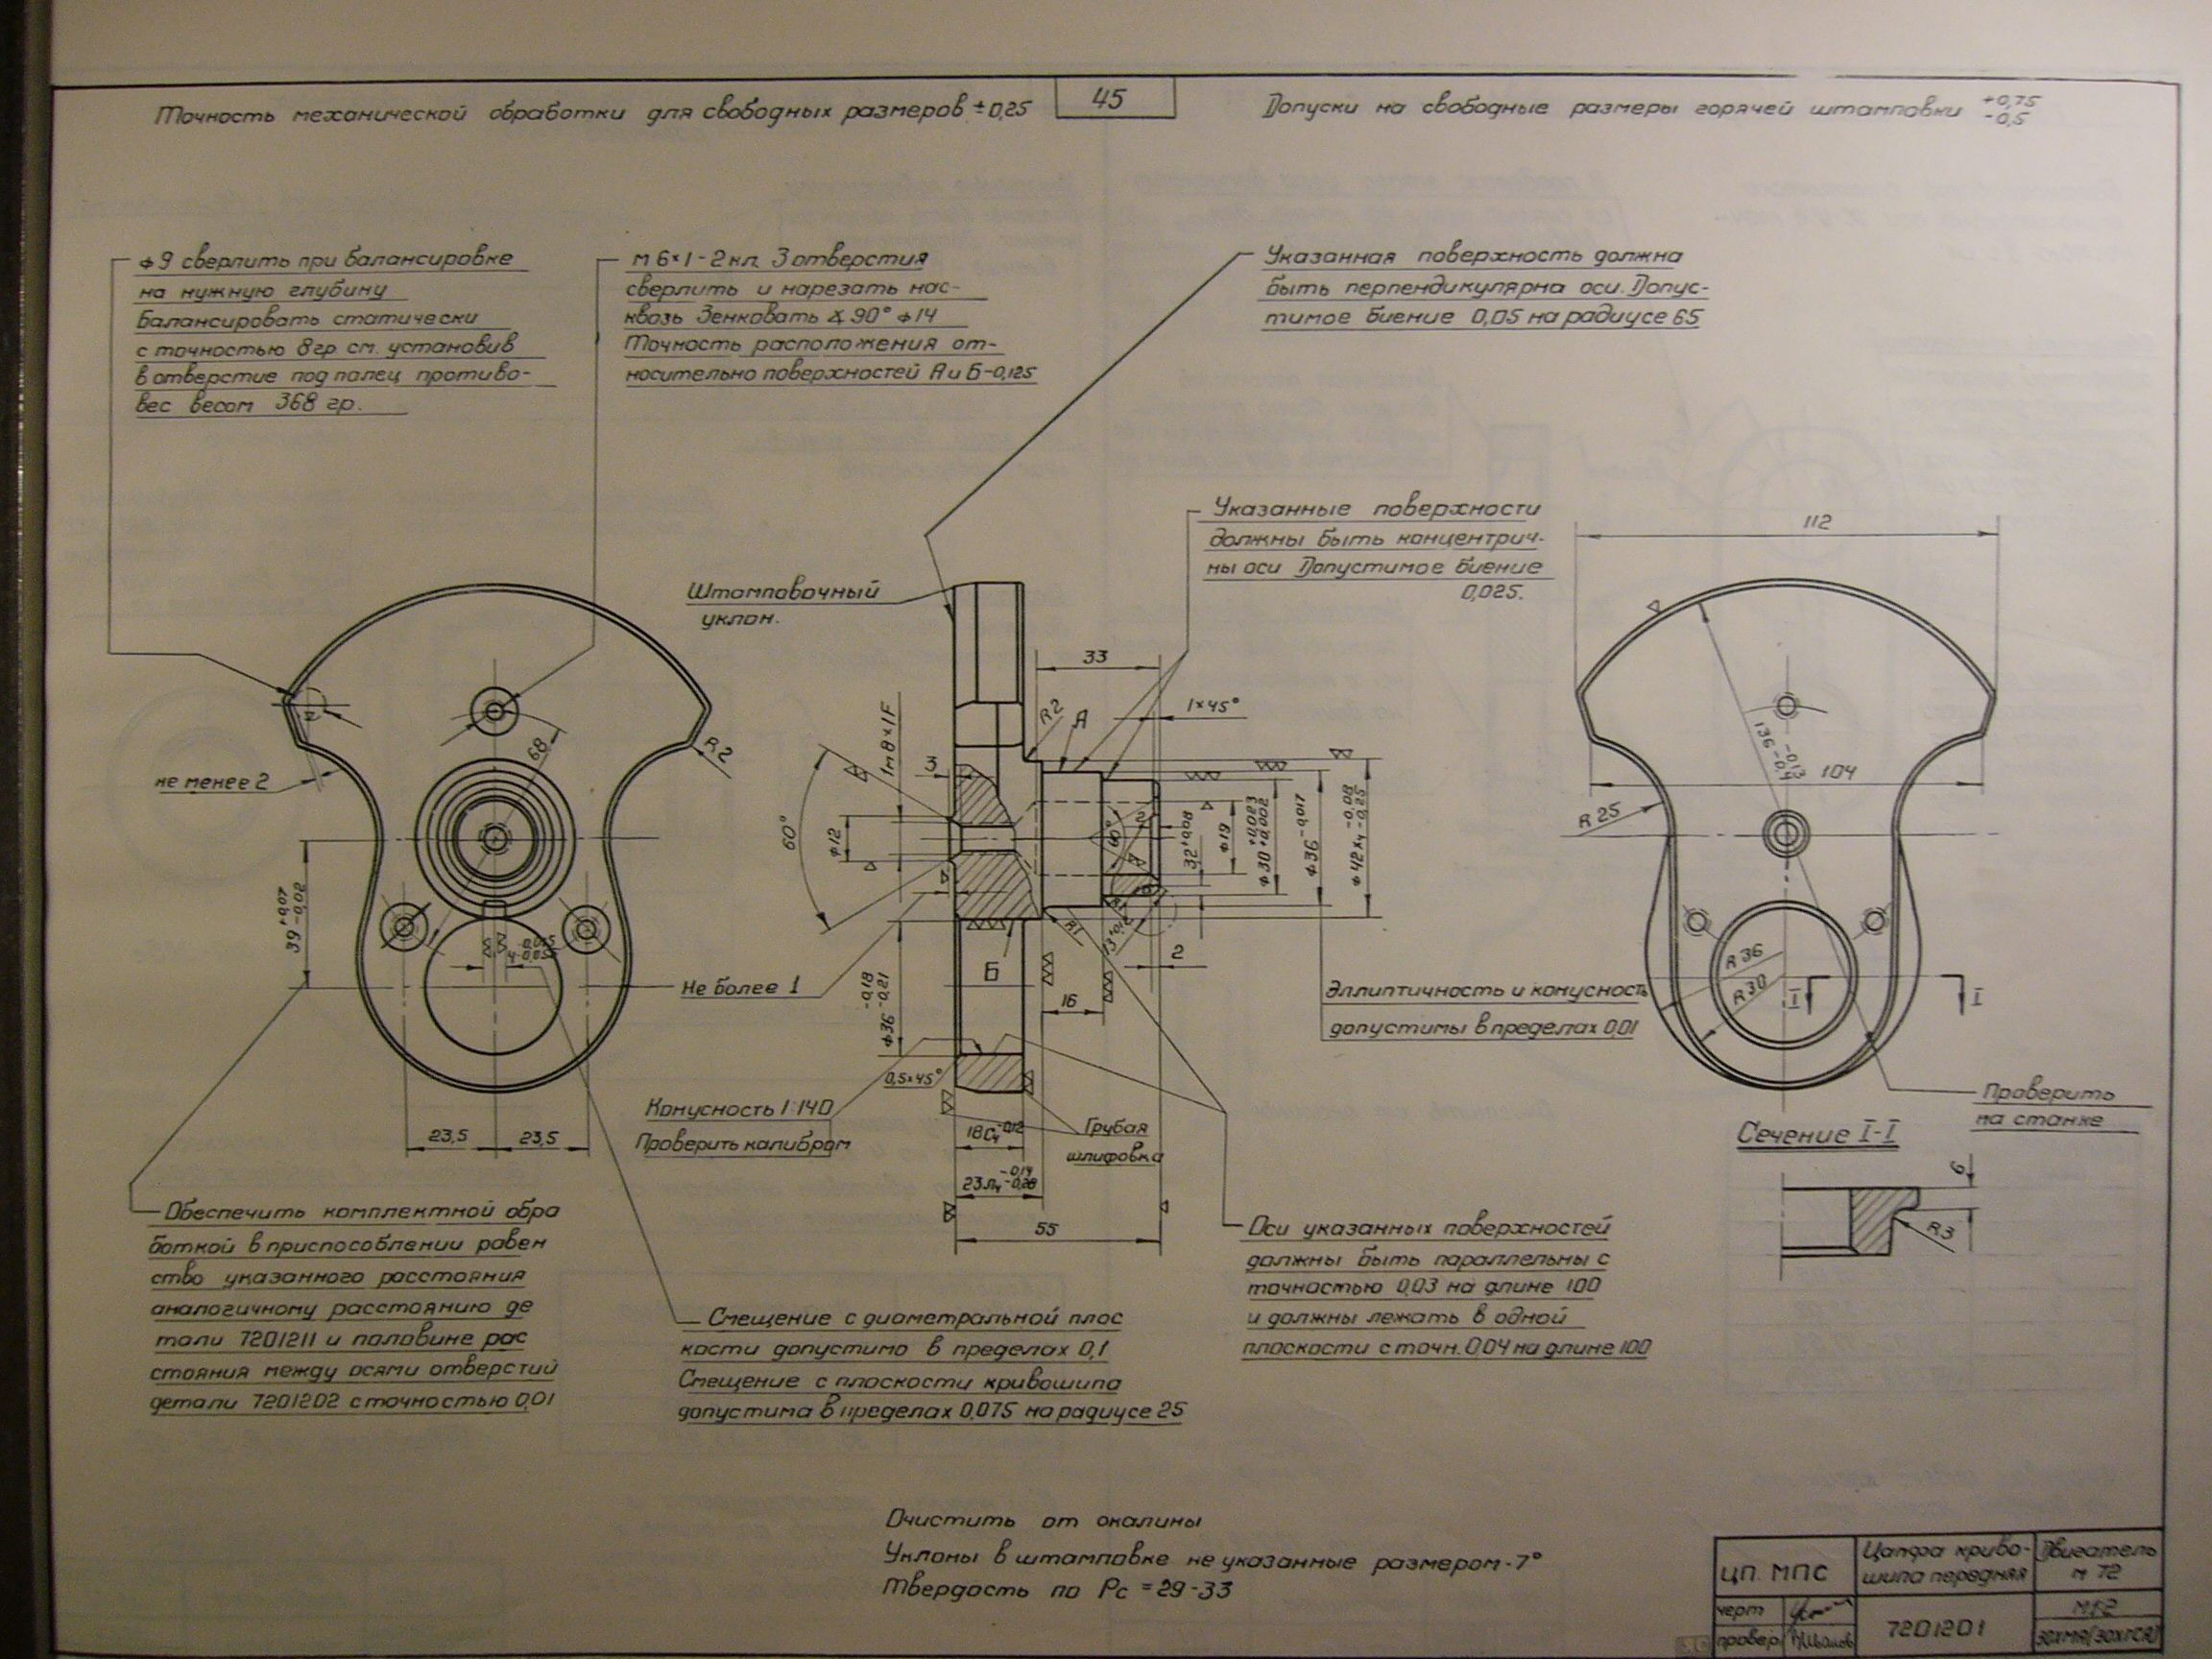 Точность механической обработки для свободных размеров ±0,25
45
Допуски на свободные размеры горячей штамповки +0,75 -0,5
ф9 сверлить при балансировке
на нужную глубину
Балансировать статически
с точностью 8гр см. установив
в отверстие под палец противо-
вес весом 368 гр.
М6×1-2кл. 3 отверстия
сверлить и нарезать нас-
квозь Зенковать ∢90° ф14
Точность расположения от-
носительно поверхностей А и Б-0,125
Указанная поверхность должна
быть перпендикулярна оси. Допус-
тимое биение 0,05 на радиусе 65
Указанные поверхности
должны быть концентрич-
ны оси Допустимое биение
0,025.
Штамповочный
уклон.
112
33
1×45°
R2
А
1м8×1F
3
60°
ф12
68
R2
не менее 2
39 +0,07 -0,02
4 -0,015 -0,055
23,5
23,5
Не более 1
ф36 -0,18 -0,21
Б
60°
2
32+0,08
ф19
ф30 +0,023 +0,002
ф36-0,017
ф42х4 -0,08 -0,25
R1
2
16
0,5×45°
Конусность 1:140
Проверить калибром
18С4 -0,12
Грубая
шлифовка
23Л4 -0,14 -0,28
55
Эллиптичность и конусность
допустимы в пределах 0,01
136 -0,13 -0,4
104
R25
R36
R30
I
I
Проверить
на станке
Сечение I-I
6
R3
Обеспечить комплектной обра
боткой в приспособлении равен
ство указанного расстояния
аналогичному расстоянию де
тали 7201211 и половине рас
стояния между осями отверстий
детали 7201202 с точностью 0,01
Смещение с диаметральной плос
кости допустимо в пределах 0,1
Смещение с плоскости кривошипа
допустима в пределах 0,075 на радиусе 25
Оси указанных поверхностей
должны быть параллельны с
точностью 0,03 на длине 100
и должны лежать в одной
плоскости с точн. 0,04 на длине 100
Очистить от окалины
Уклоны в штамповке не указанные размером-7°
Твердость по Рс = 29-33
ЦП. МПС
Цапфа криво-
шипа передняя
Двигатель
м 72
черт
провер
7201201
М1:2
30ХМА(30ХГСА)